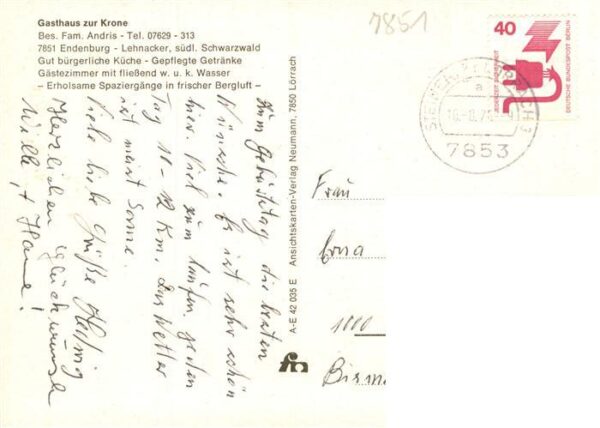 Gasthaus zur Krone
Bes. Fam. Andris - Tel. 07629 - 313
7851 Endenburg - Lehnacker, südl. Schwarzwald
Gut bürgerliche Küche - Gepflegte Getränke
Gästezimmer mit fließend w. u. k. Wasser
- Erholsame Spaziergänge in frischer Bergluft -
7851
40
DEUTSCHE BUNDESPOST BERLIN
JEDERZEIT SICHERHEIT
a
7853
zum Geburtstag die besten
Wünsche. Es ist sehr schön
hier. Viel zum laufen, jeden
Tag 10 - 12 Km. Das Wetter
ist mit Sonne.
Viele liebe Grüße Hedwig
Herzlichen Glückwunsch
Willi +
A-E 42 035 E Ansichtskarten-Verlag Neumann, 7850 Lörrach
Frau
Erna
1000
Bism